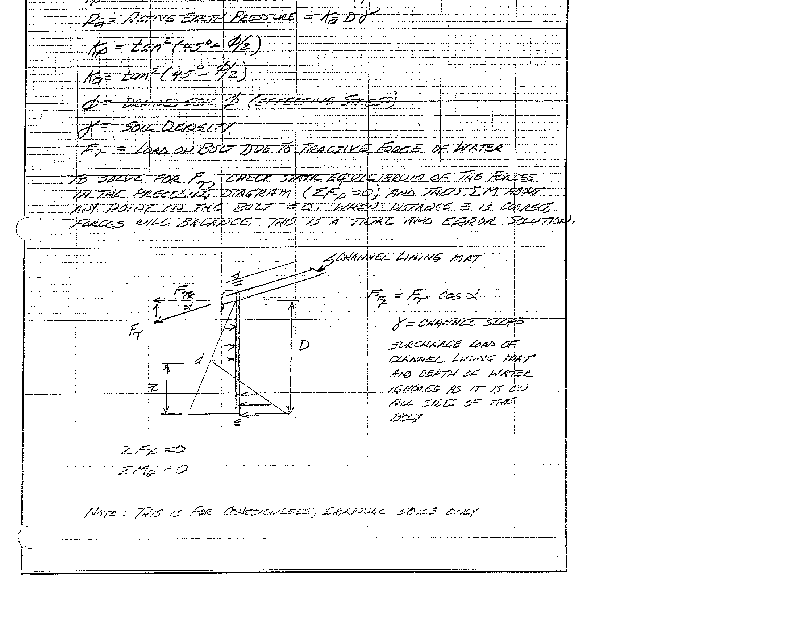 Pa = ACTIVE EARTH PRESSURE = Ka D γ
Kp = tan²(45°+ φ/2)
Ka = tan²(45°- φ/2)
φ = DRAINED SOIL φ (EFFECTIVE STRESS)
γ = SOIL DENSITY
FT = LOAD ON BOLT DUE TO TRACTIVE FORCE OF WATER
TO SOLVE FOR FT, CHECK STATIC EQUILIBRIUM OF THE FORCES
IN THE PRECEDING DIAGRAM (ΣFx = 0) AND THUS ΣM ABOUT
ANY POINT IN THE BOLT = 0. WHEN DISTANCE Z IS CORRECT,
FORCES WILL BALANCE. THIS IS A TRIAL AND ERROR SOLUTION.
CHANNEL LINING MAT
FTx
α
FT
d
Z
D
FTx = FT COS α
γ = CHANNEL SLOPE
SURCHARGE LOAD OF
CHANNEL LINING MAT
AND DEPTH OF WATER
IGNORED AS IT IS ON
ALL SIDES OF THE
BOLT
ΣFx = 0
ΣME = 0
NOTE: THIS IS FOR COHESIONLESS, GRANULAR SOILS ONLY